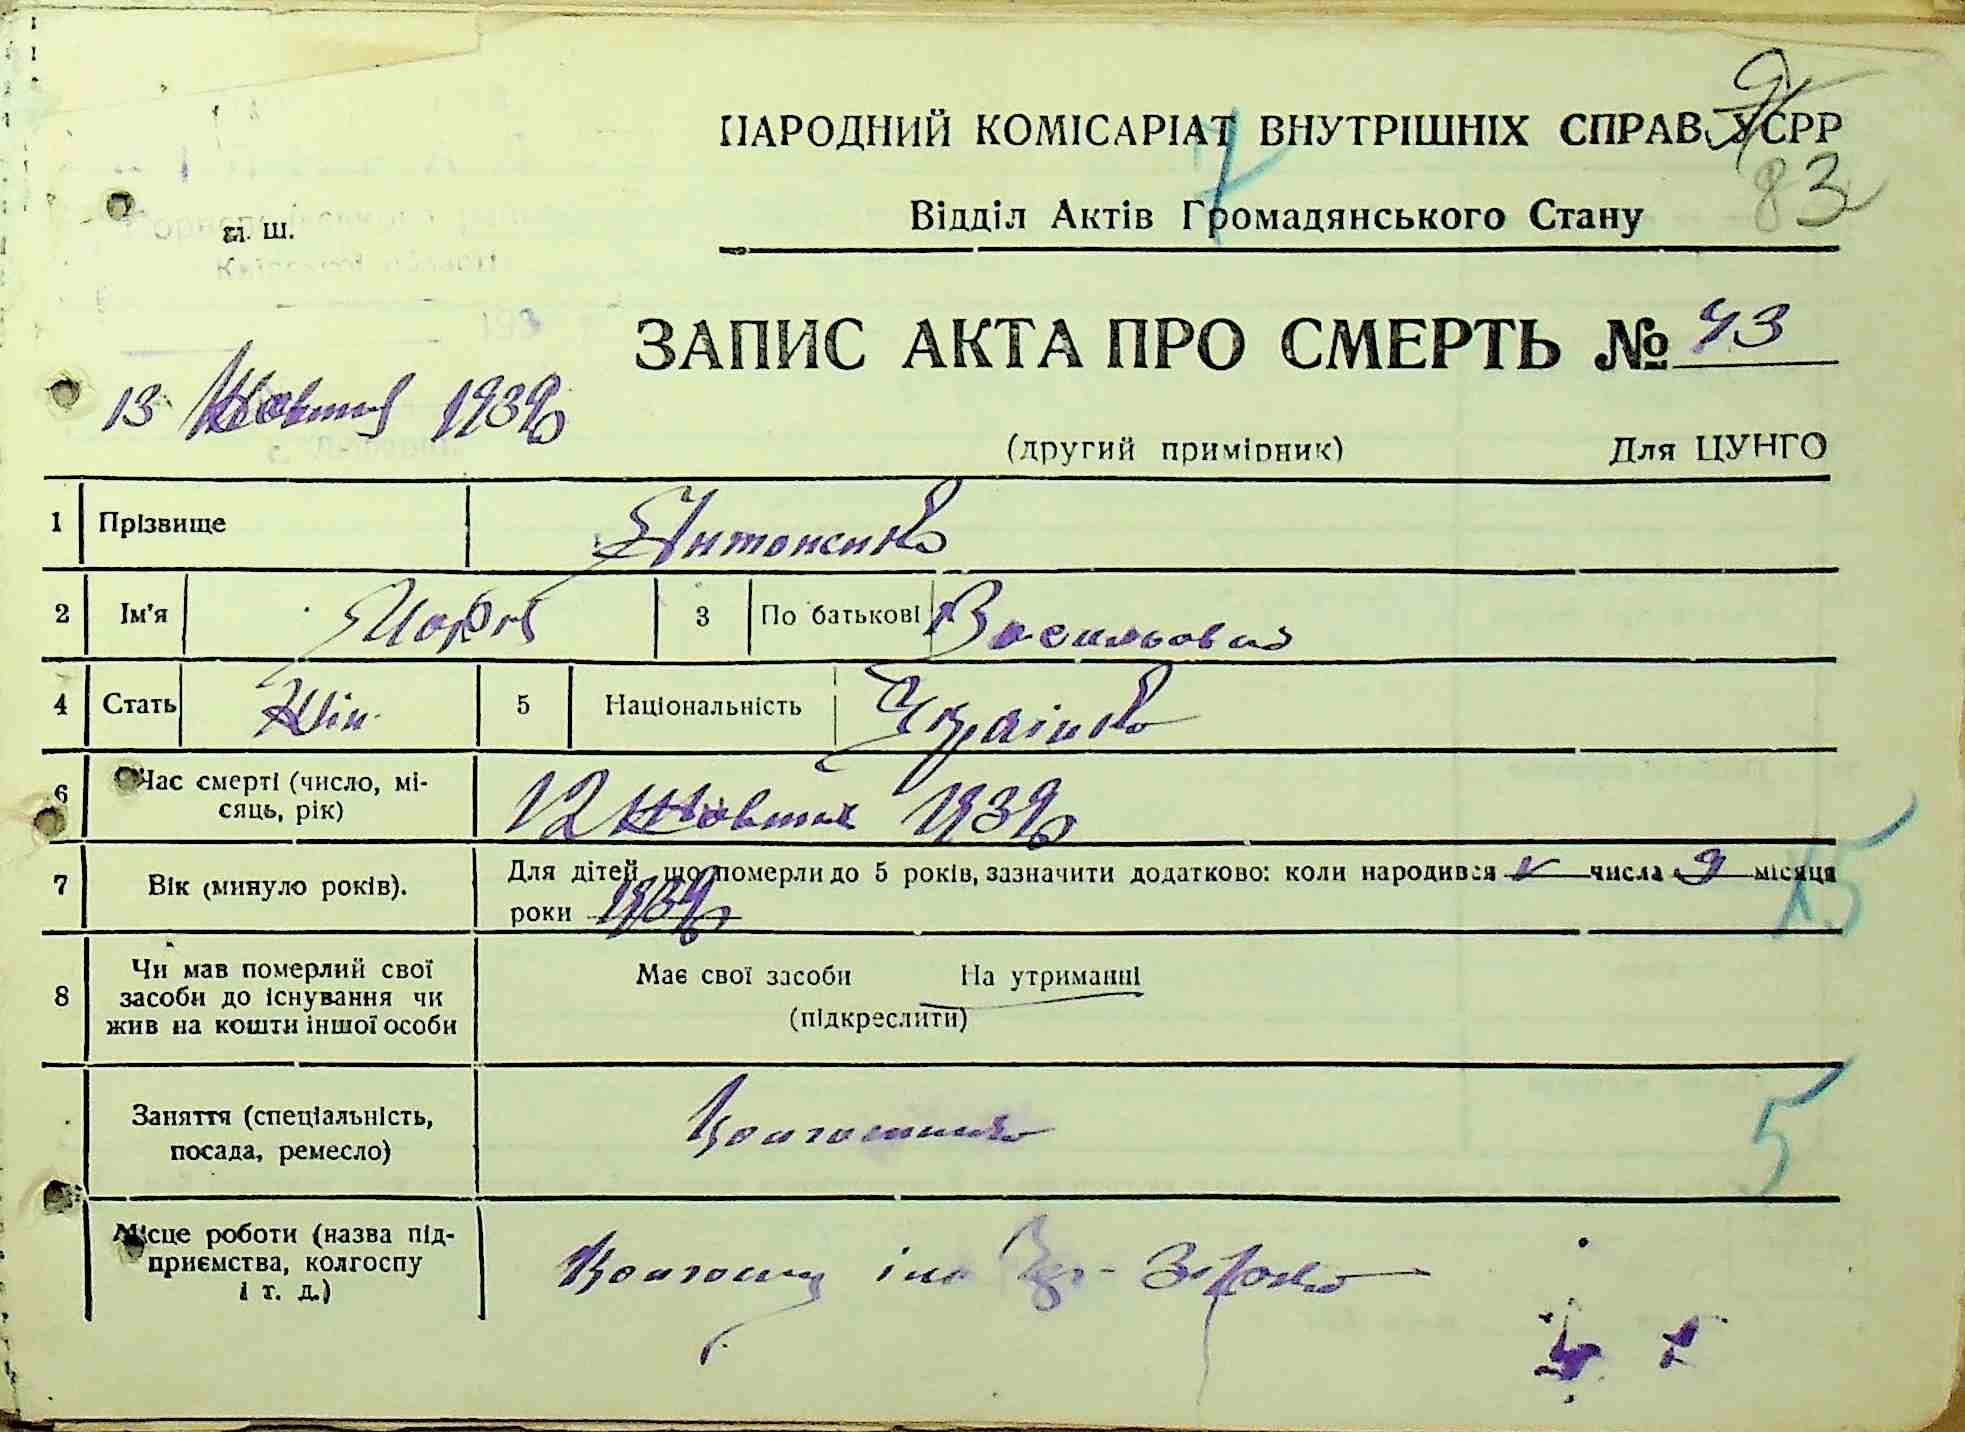 НАРОДНИЙ КОМІСАРІАТ ВНУТРІШНІХ СПРАВ УСРР
83
Відділ Актів Громадянського Стану
м. ш.
ЗАПИС АКТА ПРО СМЕРТЬ № 43
13 Жовтня 1932р
(другий примірник) Для ЦУНГО
1 Прізвище Антоненко
2 Ім'я Марія 3 По батькові Васильовна
4 Стать Жін. 5 Національність Українка
6 Час смерті (число, місяць, рік) 12 Жовтня 1932р
7 Вік (минуло років). Для дітей, що померли до 5 років, зазначити додатково: коли народився числа 9 місяця
роки 1932р
15
8 Чи мав померлий свої засоби до існування чи жив на кошти іншої особи
Має свої засоби На утриманні
(підкреслити)
Заняття (спеціальність, посада, ремесло) Колгоспниця
5
Місце роботи (назва підприємства, колгоспу і т. д.) Колгосп ім